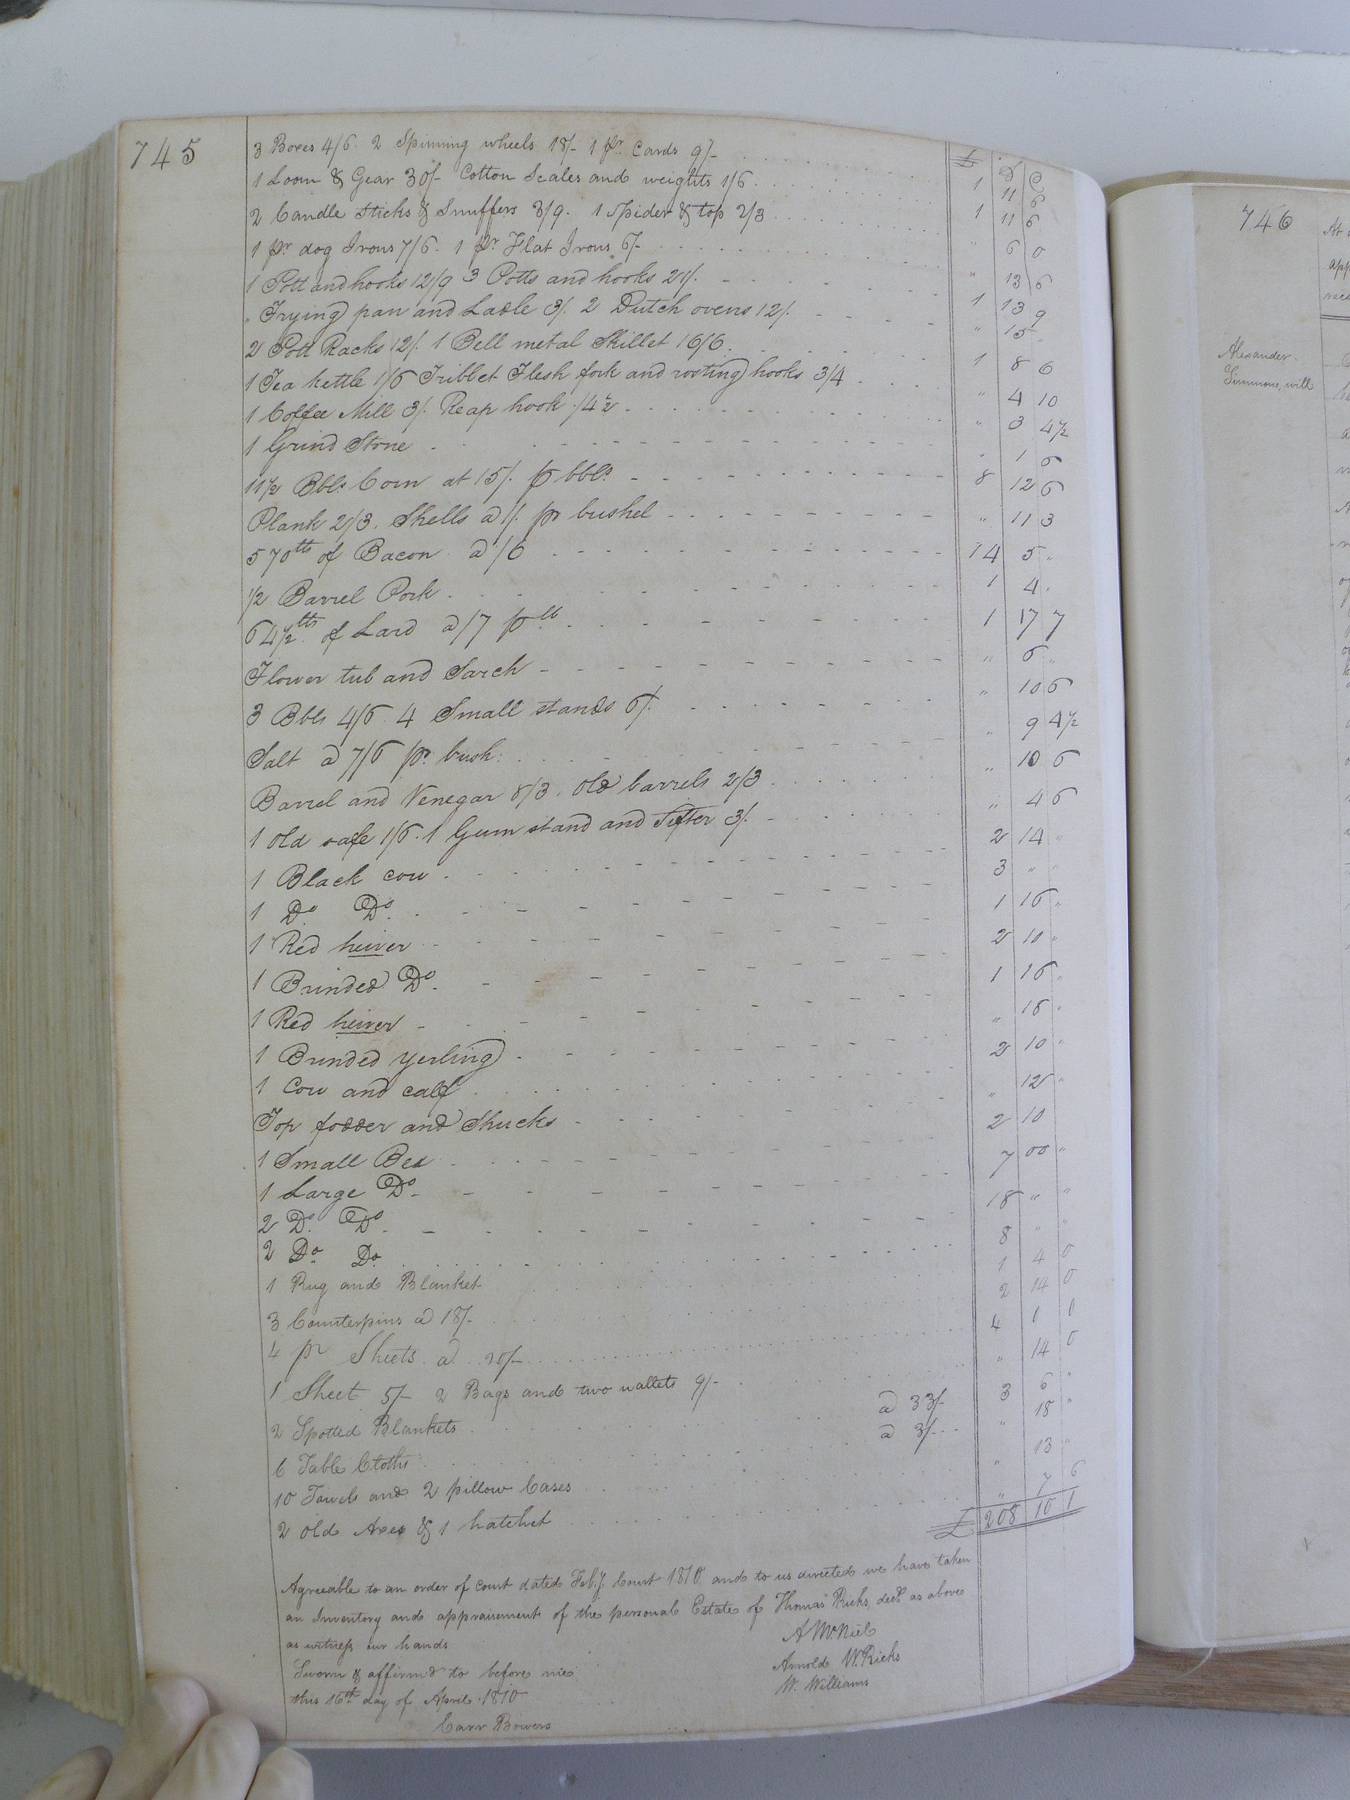 745
£ S D
3 Boxes 4/6. 2 Spinning wheels 18/- 1 pr. Cards 9/- 1 11 6
1 Loom & Gear 30/- Cotton Scales and weights 1/6 1 11 6
2 Candle Sticks & Snuffers 3/9. 1 Spider & top 2/3 " 6 0
1 pr. dog Irons 7/6. 1 pr. Flat Irons 6/- " 13 6
1 Pott and hooks 12/9 3 Potts and hooks 21/. 1 13 9
" Frying pan and Ladle 3/. 2 Dutch ovens 12/. " 15 "
2 Pott Racks 12/. 1 Bell metal Skillet 16/6 1 8 6
1 Tea kettle 1/6 Triblet Flesh fork and rosting hooks 3/4 " 4 10
1 Coffee Mill 3/. Reap hook /4½ " 3 4½
1 Grind Stone " 1 6
11½ Bbls Corn at 15/. p bbls. 8 12 6
Plank 2/3. Shells a 1/. pr bushel " 11 3
570 lbs of Bacon a /6 14 5 "
½ Barrel Pork 1 4 "
64½ lbs of Lard a /7 p lb 1 17 7
Flower tub and Sarch " 6 "
3 Bbls 4/6. 4 Small stands 6/. " 10 6
Salt a 7/6 pr. bush: " 9 4½
Barrel and Venegar 8/3. Old barrels 2/3 " 10 6
1 old safe 1/6. 1 Gum stand and Sifter 3/. " 4 6
1 Black cow 2 14 "
1 Do Do. 3 " "
1 Red heiver 1 16 "
1 Brinded Do. 2 10 "
1 Red heiver 1 16 "
1 Brinded yerling " 18 "
1 Cow and calf 2 10 "
Top fodder and Shucks " 12 "
1 Small Bed 2 10
1 Large Do. 7 00 "
2 Do. Do. 18 " "
2 Do. Do. 8 " "
1 Rug and Blanket 1 4 0
3 Counterpins a 18/- 2 14 0
4 pr Sheets a 20/- 4 0 0
1 Sheet 5/- 2 Bags and two wallets 9/- " 14 0
2 Spotted Blankets a 33/- 3 6 "
6 Table Cloths a 3/- " 18 "
10 Towels and 2 pillow Cases " 13 "
2 old Axes & 1 hatchet " 7 6
£ 208 10 1
Agreeable to an order of Court dated Feby. Court 1810, and to us directed we have taken
an Inventory and appraisment of the personal Estate of Thomas Ricks, decd. as above
as witness our hands
A McNiel
Sworn & affirmd to before me
Arnold W. Ricks
this 16th day of April 1810
W. Williams
Carr Bowers
746
Alexander
Simmons, will